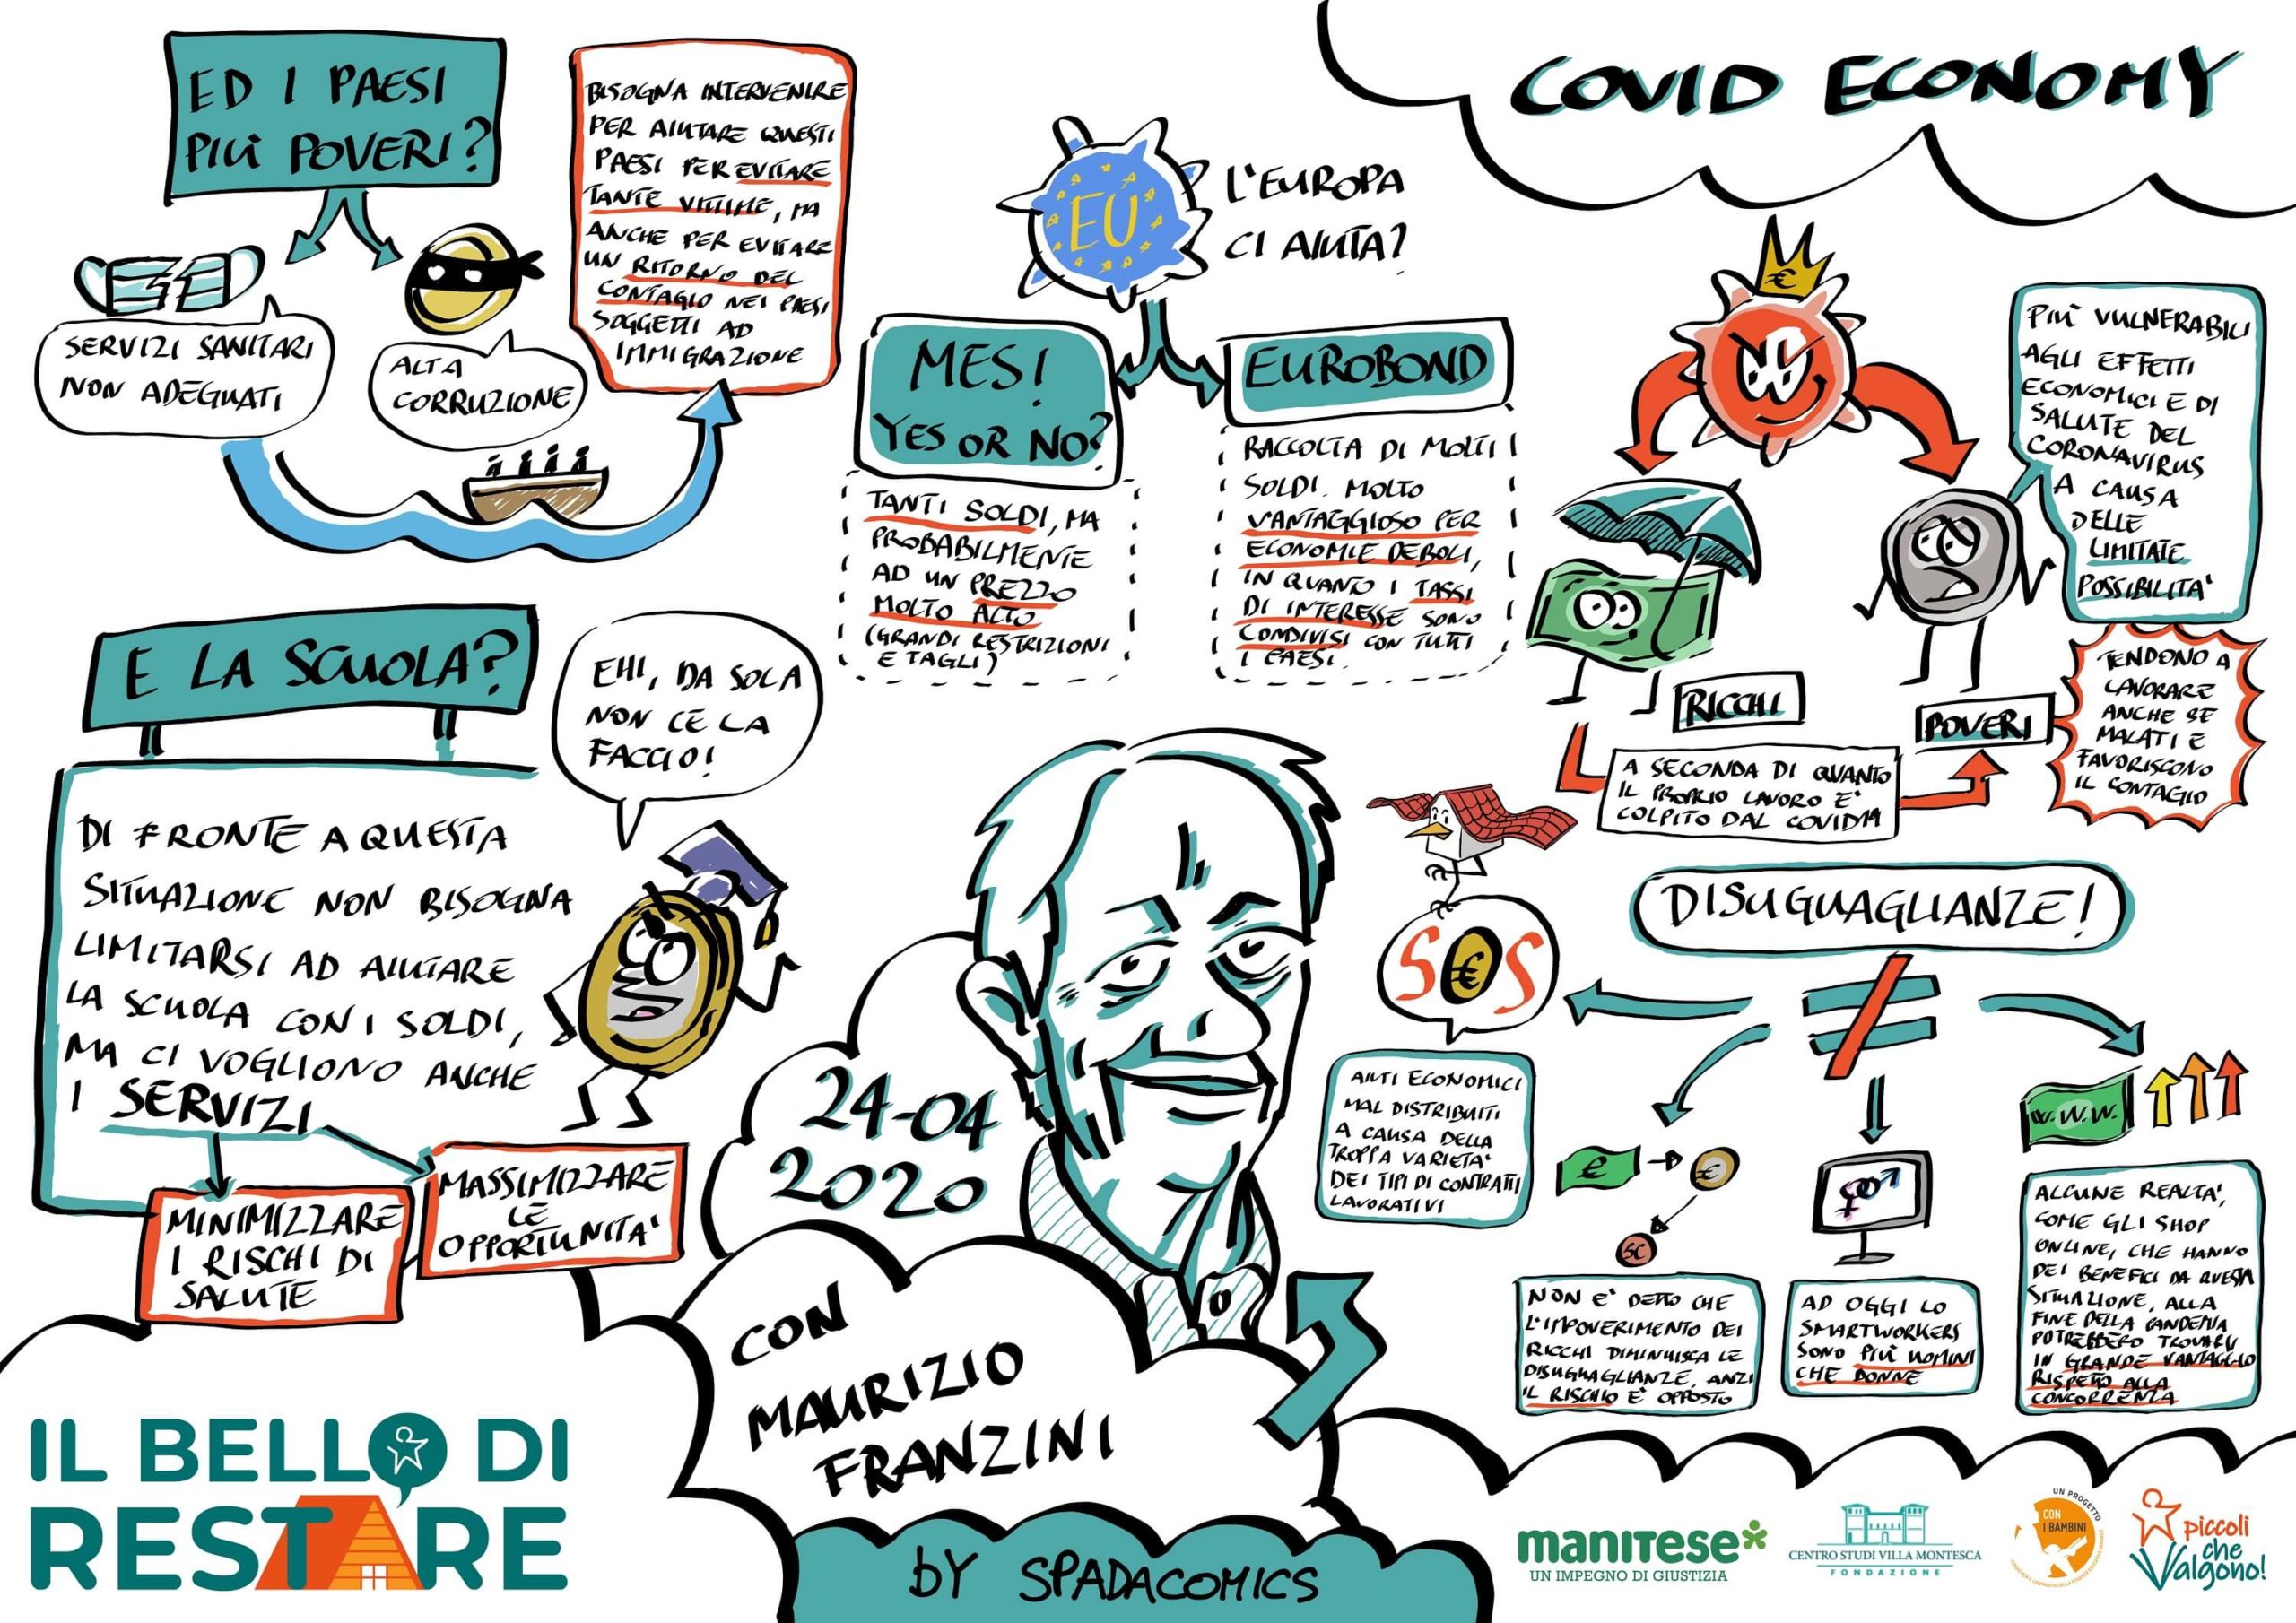 COVID ECONOMY
ED I PAESI
PIÙ POVERI?
SERVIZI SANITARI
NON ADEGUATI
ALTA
CORRUZIONE
BISOGNA INTERVENIRE
PER AIUTARE QUESTI
PAESI PER EVITARE
TANTE VITTIME, MA
ANCHE PER EVITARE
UN RITORNO DEL
CONTAGIO NEI PAESI
SOGGETTI AD
IMMIGRAZIONE
EU
L'EUROPA
CI AIUTA?
MES!
YES OR NO?
TANTI SOLDI, MA
PROBABILMENTE
AD UN PREZZO
MOLTO ALTO
(GRANDI RESTRIZIONI
E TAGLI)
EUROBOND
RACCOLTA DI MOLTI
SOLDI. MOLTO
VANTAGGIOSO PER
ECONOMIE DEBOLI,
IN QUANTO I TASSI
DI INTERESSE SONO
CONDIVISI CON TUTTI
I PAESI.
€
PIÙ VULNERABILI
AGLI EFFETTI
ECONOMICI E DI
SALUTE DEL
CORONAVIRUS
A CAUSA
DELLE
LIMITATE
POSSIBILITA'
RICCHI
POVERI
A SECONDA DI QUANTO
IL PROPRIO LAVORO E'
COLPITO DAL COVID19
TENDONO A
LAVORARE
ANCHE SE
MALATI E
FAVORISCONO
IL CONTAGIO
E LA SCUOLA?
EHI, DA SOLA
NON CE LA
FACCIO!
DI FRONTE A QUESTA
SITUAZIONE NON BISOGNA
LIMITARSI AD AIUTARE
LA SCUOLA CON I SOLDI,
MA CI VOGLIONO ANCHE
I SERVIZI
MINIMIZZARE
I RISCHI DI
SALUTE
MASSIMIZZARE
LE
OPPORTUNITA'
24-04
2020
CON
MAURIZIO
FRANZINI
BY SPADACOMICS
DISUGUAGLIANZE!
≠
S€S
AIUTI ECONOMICI
MAL DISTRIBUITI
A CAUSA DELLA
TROPPA VARIETA'
DEI TIPI DI CONTRATTI
LAVORATIVI
€
€
5C
NON E' DETTO CHE
L'IMPOVERIMENTO DEI
RICCHI DIMINUISCA LE
DISUGUAGLIANZE, ANZI
IL RISCHIO E' OPPOSTO
AD OGGI LO
SMARTWORKERS
SONO PIÙ UOMINI
CHE DONNE
W.W.W.
ALCUNE REALTA',
COME GLI SHOP
ONLINE, CHE HANNO
DEI BENEFICI DA QUESTA
SITUAZIONE, ALLA
FINE DELLA PANDEMIA
POTREBBERO TROVARSI
IN GRANDE VANTAGGIO
RISPETTO ALLA
CONCORRENZA
IL BELLO DI
RESTARE
manitese
UN IMPEGNO DI GIUSTIZIA
CENTRO STUDI VILLA MONTESCA
FONDAZIONE
UN PROGETTO
CON
I BAMBINI
piccoli
che
Valgono!